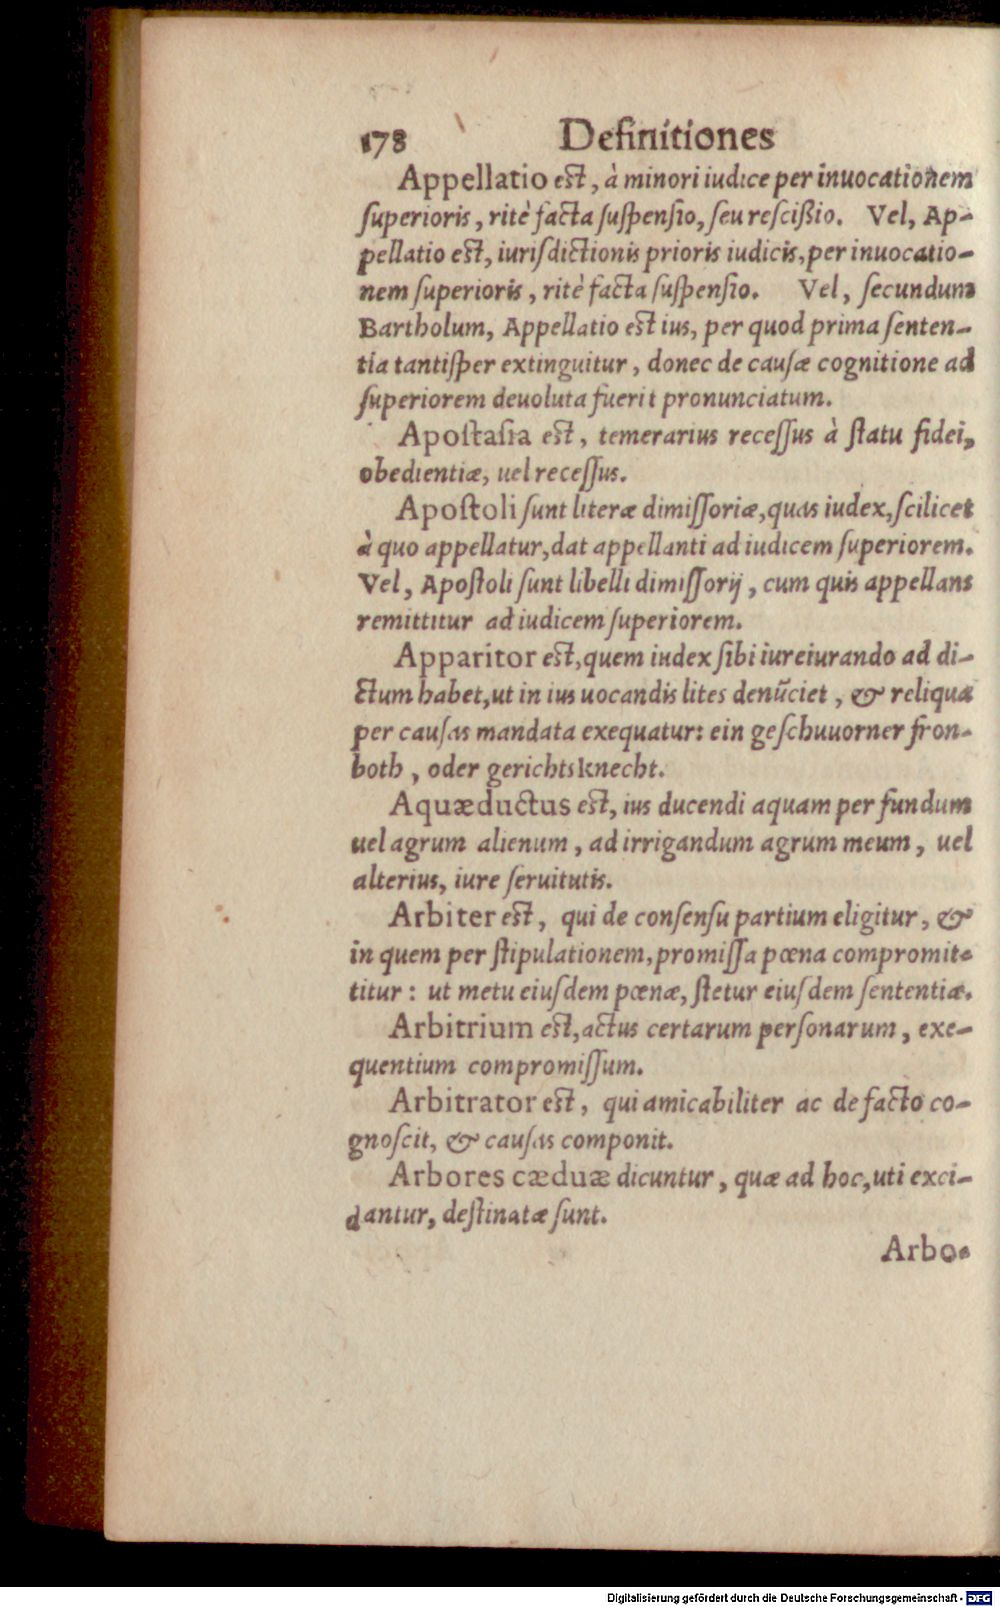 178 Definitiones
Appellatio est, à minori iudice per inuocationem
ſuperioris, ritè facta ſuſpenſio, ſeu reſciſsio. Vel, Ap-
pellatio est, iuriſdictionis prioris iudicis, per inuocatio-
nem ſuperioris, ritè facta ſuſpenſio. Vel, ſecundum
Bartholum, Appellatio est ius, per quod prima ſenten-
tia tantiſper extinguitur, donec de cauſæ cognitione ad
ſuperiorem deuoluta fuerit pronunciatum.
Apoſtaſia est, temerarius receſſus à ſtatu fidei,
obedientiæ, uel receſſus.
Apoſtoli ſunt literæ dimiſſoriæ, quas iudex, ſcilicet
à quo appellatur, dat appellanti ad iudicem ſuperiorem.
Vel, Apoſtoli ſunt libelli dimiſſorij, cum quis appellans
remittitur ad iudicem ſuperiorem.
Apparitor est, quem iudex ſibi iureiurando ad di-
ctum habet, ut in ius uocandis lites denũciet, & reliqua
per cauſas mandata exequatur: ein geſchuuorner fron-
both, oder gerichtsknecht.
Aquæductus est, ius ducendi aquam per fundum
uel agrum alienum, ad irrigandum agrum meum, uel
alterius, iure ſeruitutis.
Arbiter est, qui de conſenſu partium eligitur, &
in quem per ſtipulationem, promiſſa pœna compromit-
titur: ut metu eiuſdem pœnæ, ſtetur eiuſdem ſententiæ.
Arbitrium est, actus certarum perſonarum, exe-
quentium compromiſſum.
Arbitrator est, qui amicabiliter ac de facto co-
gnoſcit, & cauſas componit.
Arbores cæduæ dicuntur, quæ ad hoc, uti exci-
dantur, deſtinatæ ſunt.
Arbo-
Digitalisierung gefördert durch die Deutsche Forschungsgemeinschaft - DFG